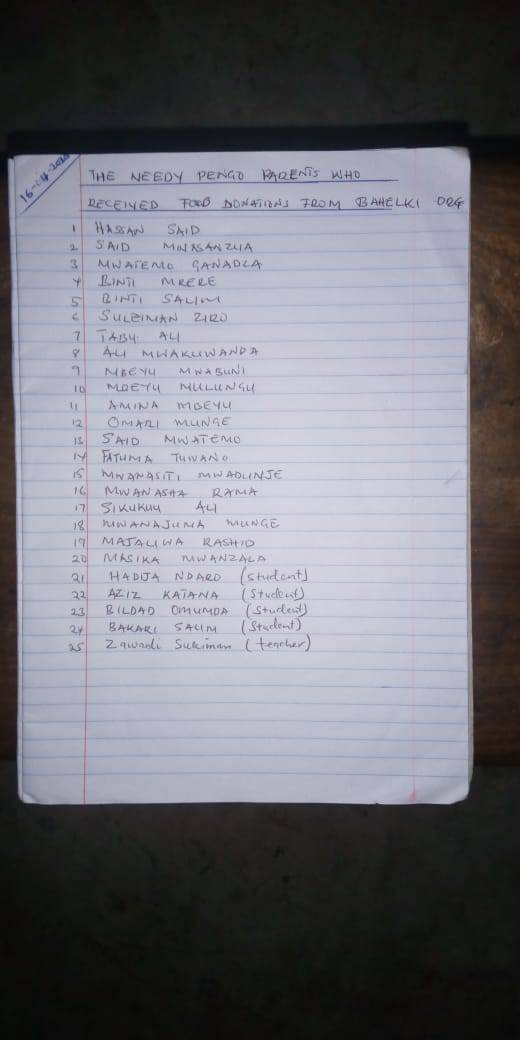 16-04-2020
THE NEEDY PENGO PARENTS WHO
RECEIVED FOOD DONATIONS FROM BAHELKI ORG
1 HASSAN SAID
2 SAID MWASANZUA
3 MWATEMO GANADZA
4 BINTI MRERE
5 BINTI SALIM
6 SULEIMAN ZIRO
7 TABU ALI
8 ALI MWAKUWANDA
9 MBEYU MWABUNI
10 MBEYU MULUNGU
11 AMINA MBEYU
12 OMARI MUNGE
13 SAID MWATEMO
14 FATUMA TUWANO
15 MWANASITI MWADUNJE
16 MWANASHA RAMA
17 SIKUKUU ALI
18 MWANAJUMA MUNGE
19 MAJALIWA RASHID
20 MASIKA MWANZALA
21 HADIJA NDARO (student)
22 AZIZ KATANA (Student)
23 BILDAD OMUMBA (Student)
24 BAKARI SALIM (Student)
25 Zawadi Suleiman (teacher)